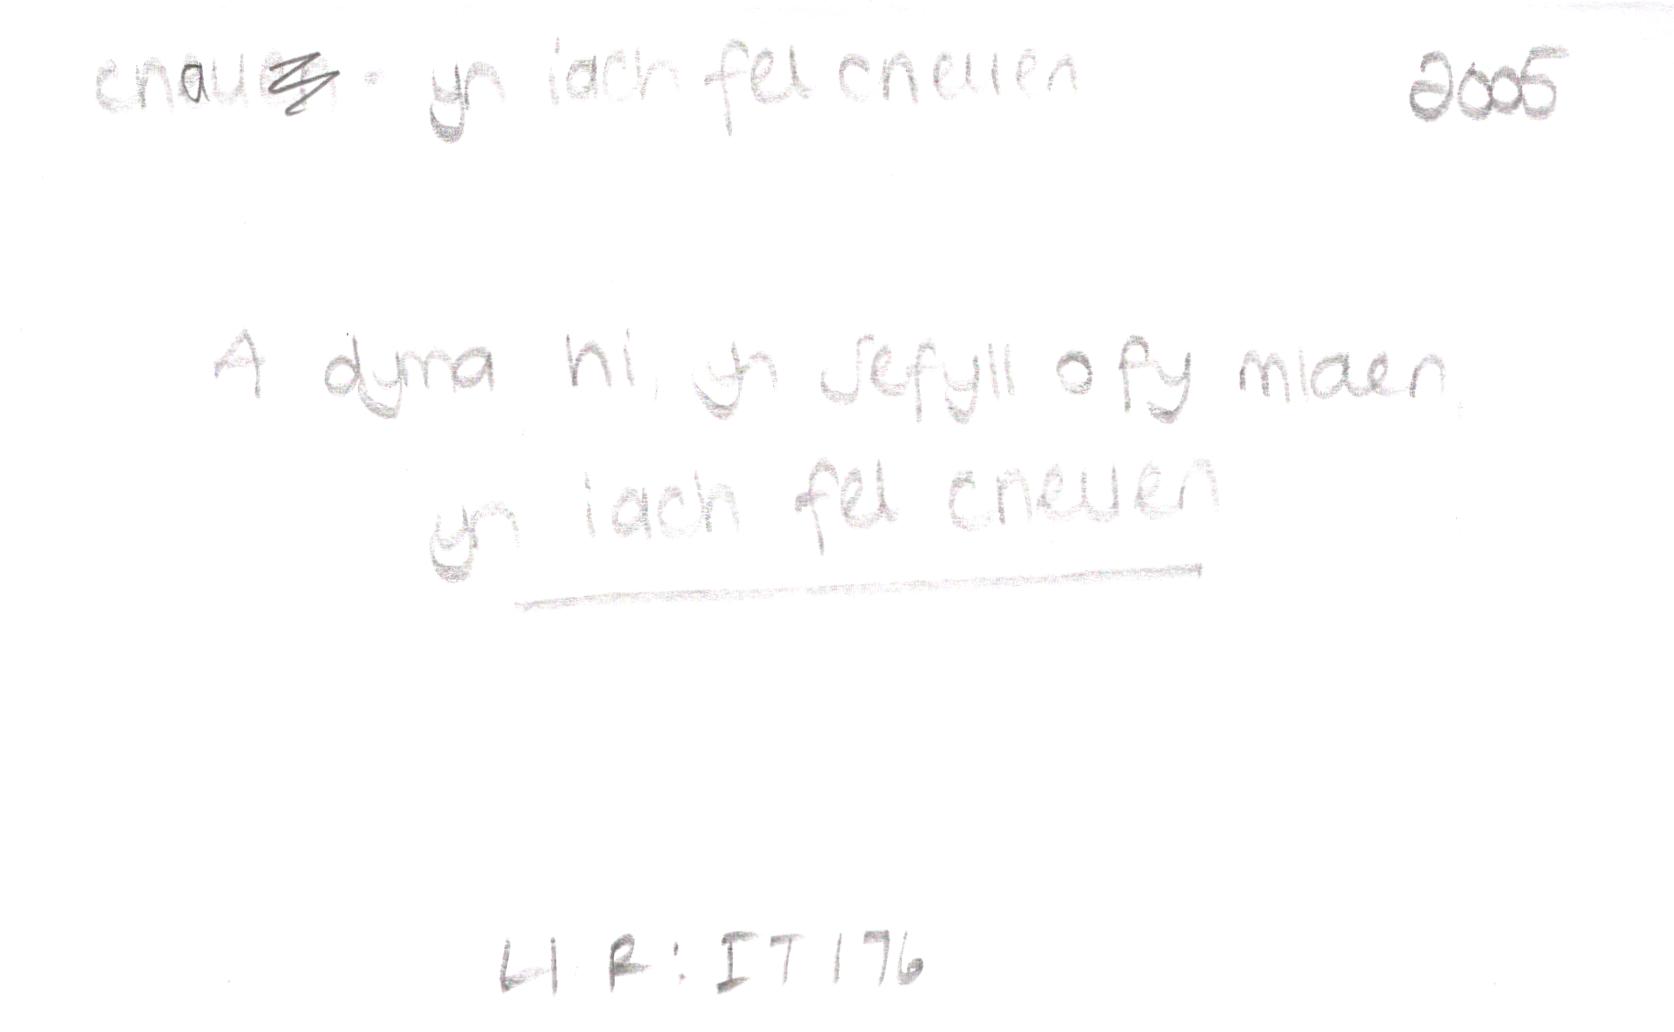 cnau - yn iach fel cneuen 2005
A dyma hi, yn sefyll o fy mlaen
yn iach fel cneuen
Ll R: IT 176